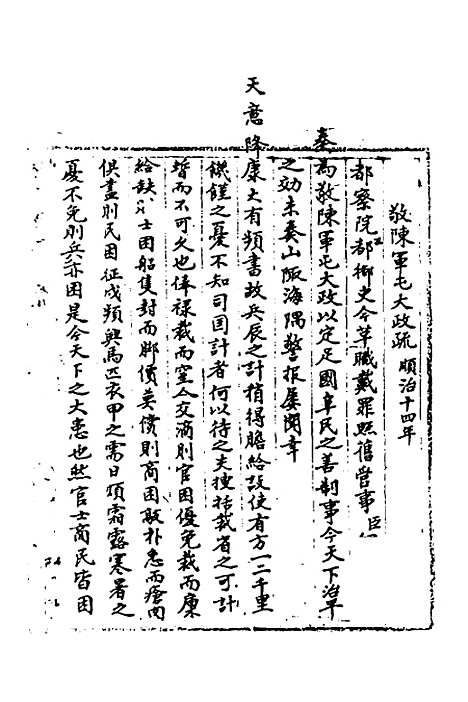 敬陳軍屯大政疏 順治十四年
都察院左都御史今革職戴罪照舊管事臣
奏為敬陳軍屯大政以定足國阜民之善制事今天下治平
之効未奏山陬海隅警報屢聞幸
天意降康大有頻書故兵辰之計稍得贍給設使有方一二千里
饑饉之憂不知司国計者何以待之夫搜括裁省之可計
暫而不可久也俸禄裁而室人交謫則官困優免裁而廩
給缺則士困船隻封而脚價莫償則商困敲扑急而瘡肉
俱盡則民困征戍頻興馬匹衣甲之需日煩霜露寒暑之
憂不免則兵亦困是今天下之大患也然官士商民皆困